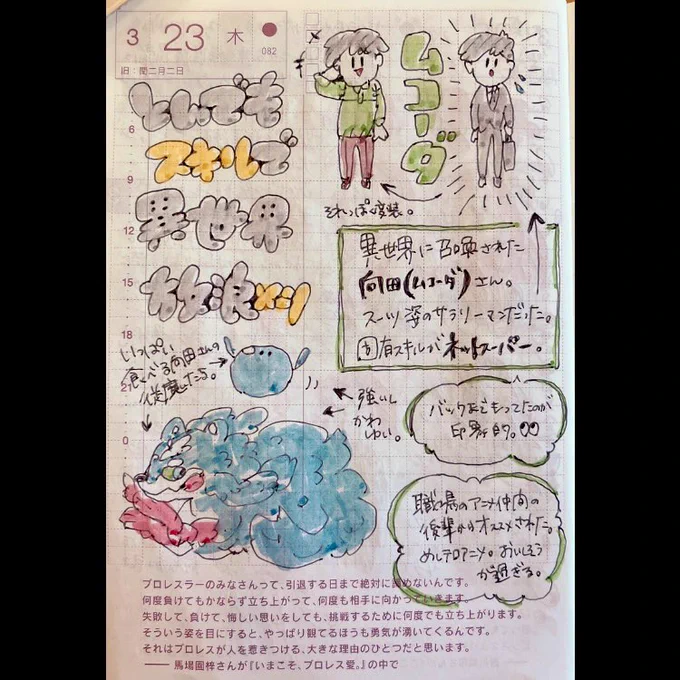 3 23 木
082
旧:閏二月二日
6
9
12
15
18
21
0
とんでも
スキルで
異世界
放浪メシ
ムコーダ
それっぽく変装。
異世界に召喚された
向田(ムコーダ)さん。
スーツ姿のサラリーマンだった。
固有スキルがネットスーパー。
いっぱい
食べる向田さんの
従魔たち。
強いし
かわ
ゆい。
バックまでもってたのが
印象的。
職場のアニメ仲間の
後輩からオススメされた。
めしテロアニメ。おいしそう
が過ぎる。
プロレスラーのみなさんって、引退する日まで絶対に諦めないんです。
何度負けてもかならず立ち上がって、何度も相手に向かっていきます。
失敗して、負けて、悔しい思いをしても、挑戦するために何度でも立ち上がります。
そういう姿を目にすると、やっぱり観てるほうも勇気が湧いてくるんです。
それはプロレスが人を惹きつける、大きな理由のひとつだと思います。
—— 馬場園梓さんが『いまこそ、プロレス愛。』の中で